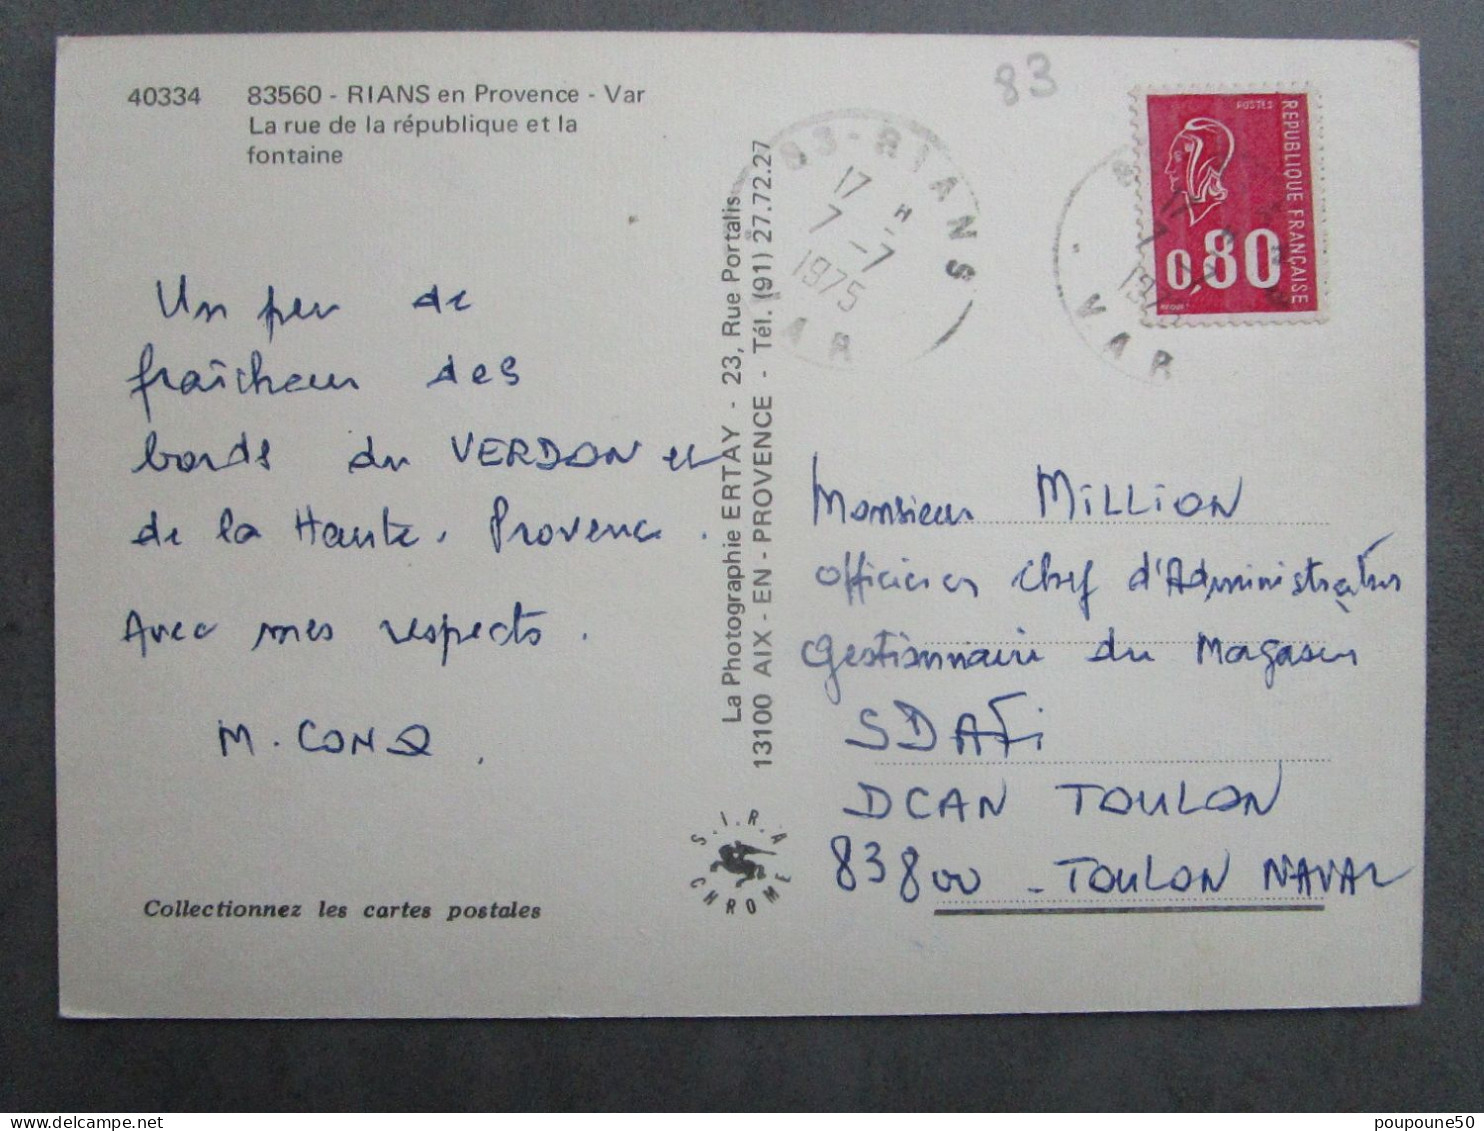 40334 83560 - RIANS en Provence - Var
La rue de la république et la
fontaine
83
83-RIANS
17 H
7 -7
1975
VAR
POSTES
REPUBLIQUE FRANÇAISE
0,80
17
VAR
Un peu de
fraîcheur des
bords du VERDON et
de la Haute. Provence.
Avec mes respects.
M. CONQ.
Collectionnez les cartes postales
La Photographie ERTAY - 23, Rue Portalis
13100 AIX - EN - PROVENCE - Tél. (91) 27.72.27
S.I.R.A.
CHROME
Monsieur MiLLiON
Officier en chef d'Administration
Gestionnaire du Magasin
SDAFi
DCAN TOULON
83800 - TOULON NAVAL
delcampe.net
poupoune50